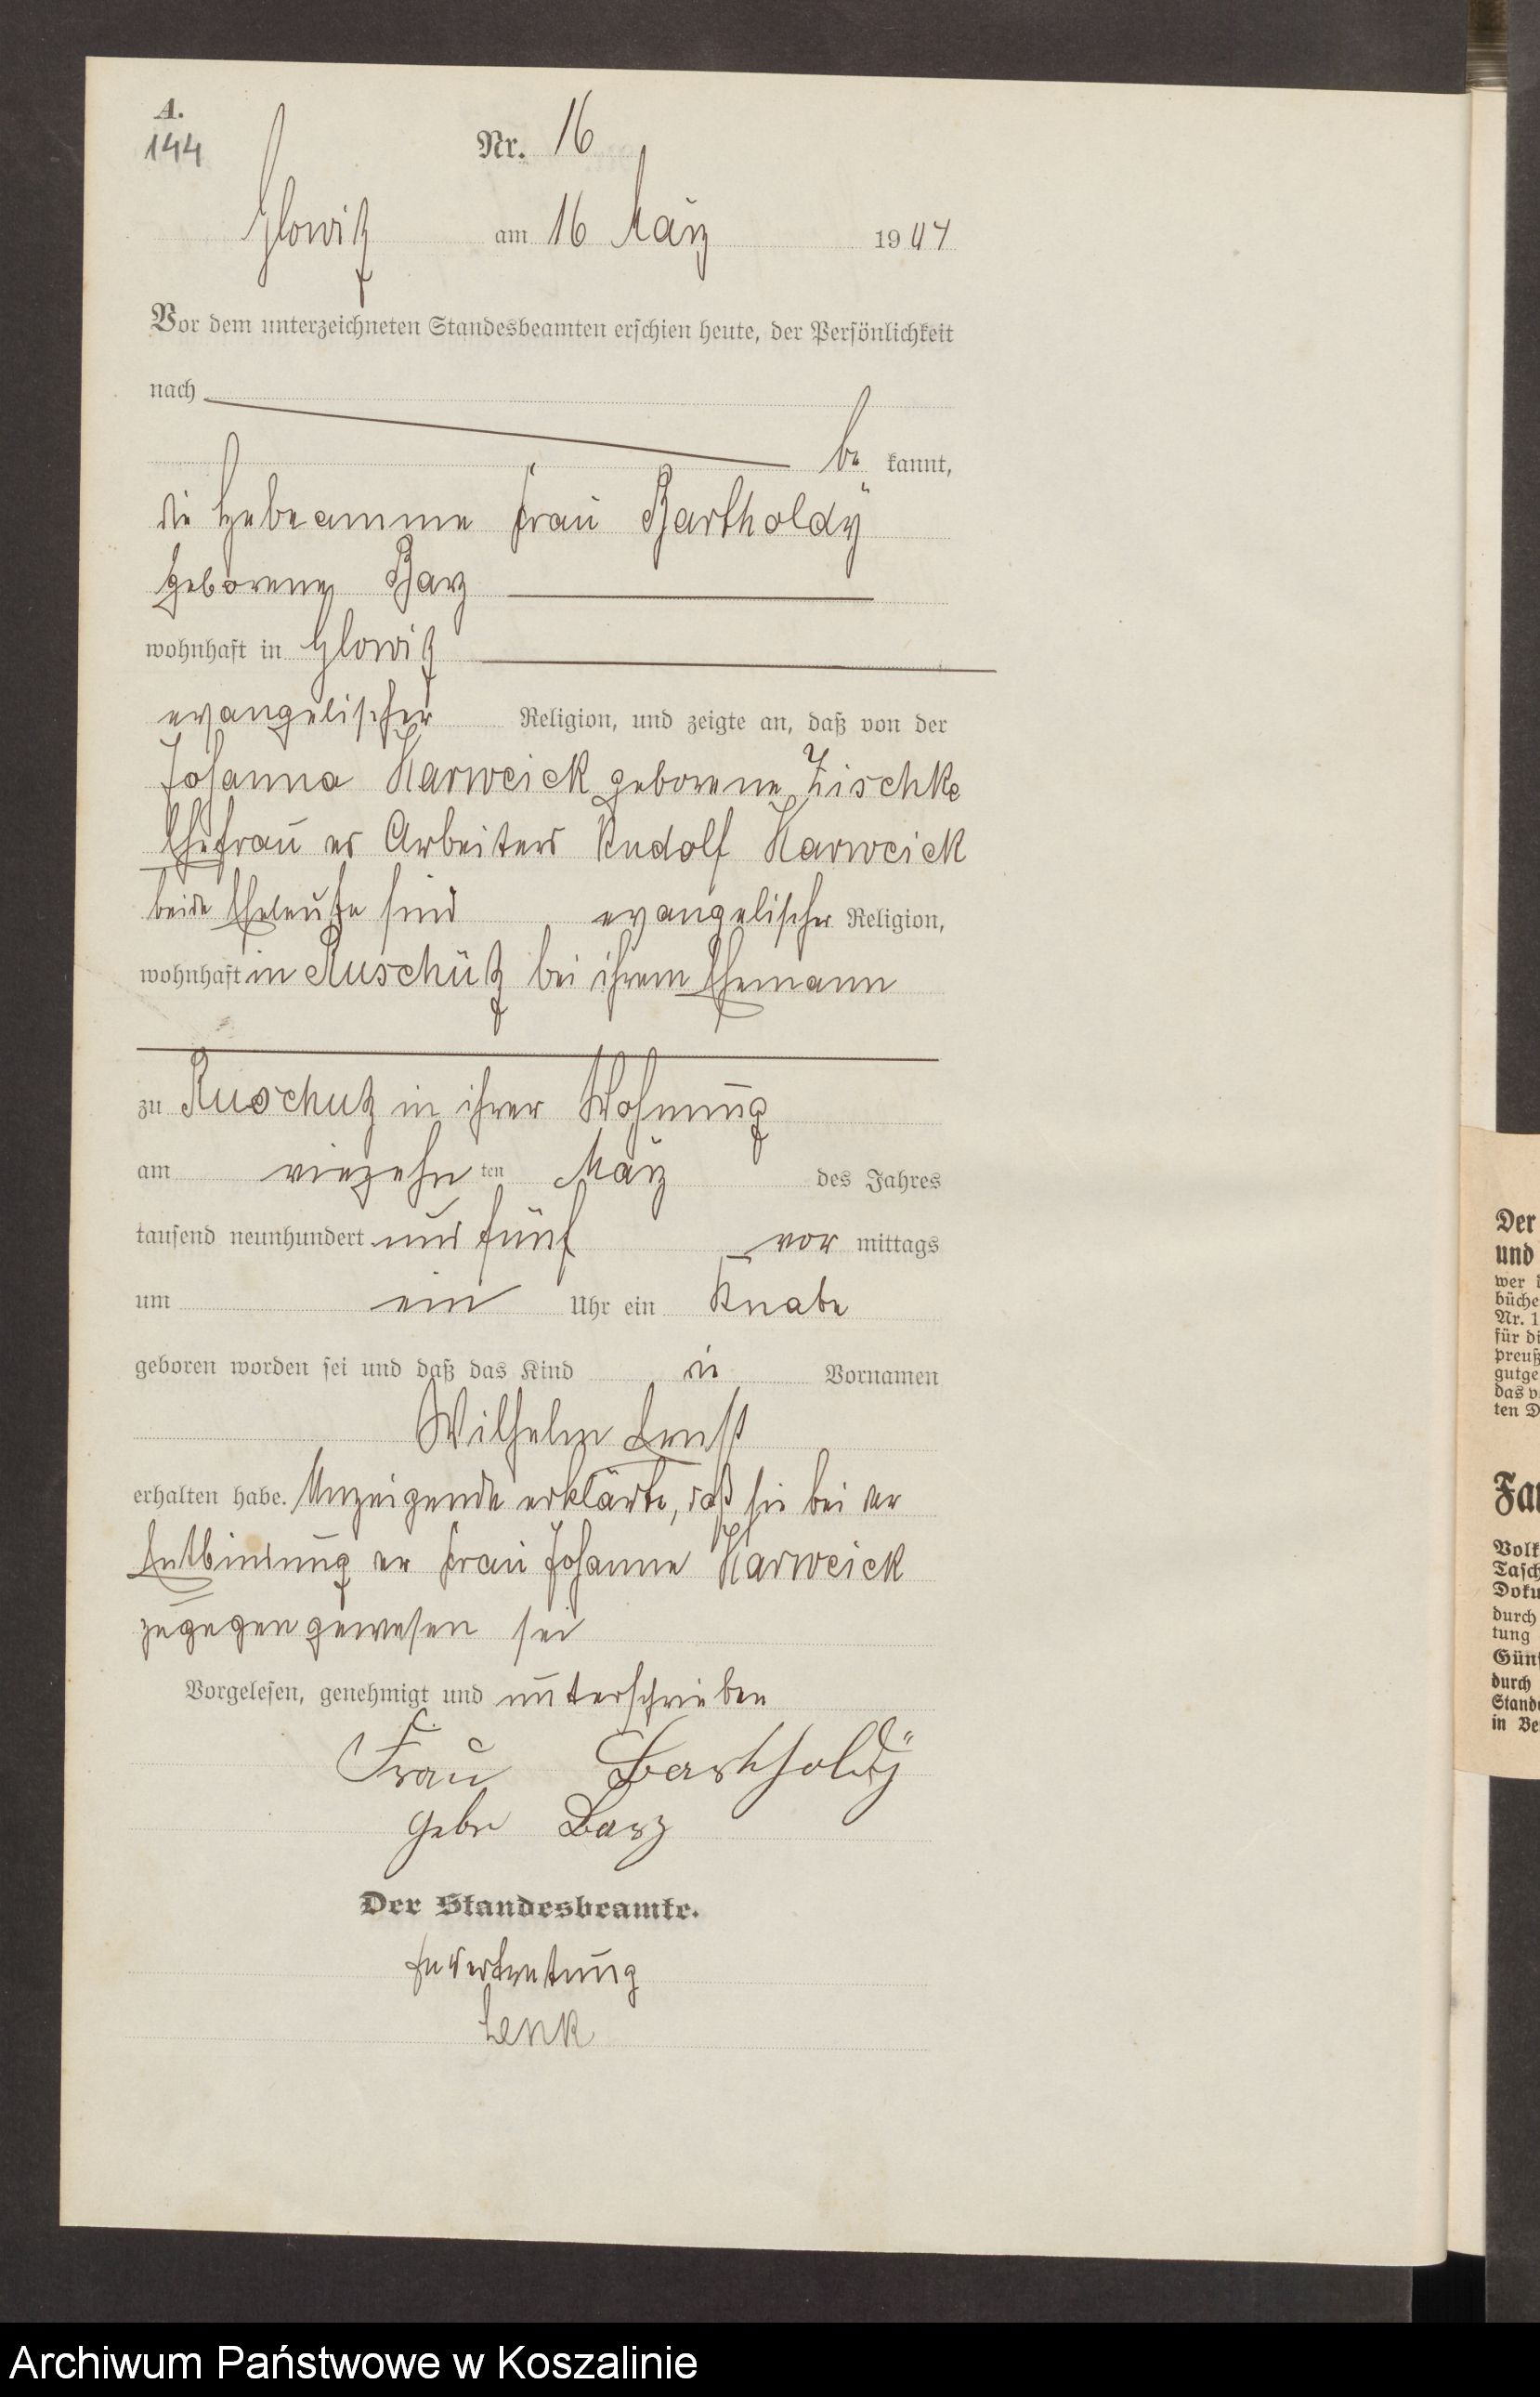 A.
144
Nr. 16
Glowitz am 16 März 19
Vor dem unterzeichneten Standesbeamten erschien heute, der Persönlichkeit
nach
be kannt,
die Hebeamme Frau Bartholdÿ
geborene Barz
wohnhaft in Glowitz
evangelischer Religion, und zeigte an, daß von der
Johanna Karweick geborene Zischke
Ehefrau des Arbeiters Rudolf Karweick
beide Eheleute sind evangelischer Religion,
wohnhaft in Ruschütz bei ihrem Ehemann
zu Ruschutz in ihrer Wohnung
am vierzehn ten März des Jahres
tausend neunhundert und fünf vor mittags
um ein Uhr ein Knabe
geboren worden sei und daß das Kind die Vornamen
Wilhelm Ernst
erhalten habe. Anzeigende erklärte, daß sie bei der
Entbindung der Frau Johanne Karweick
zugegen gewesen sei
Vorgelesen, genehmigt und unterschrieben
Frau Bartholdÿ
gebr Barz
Der Standesbeamte.
In Vertretung
Lenk
Der
und
wer i
büche
Nr. 1
für di
preuß
gutge
das v
ten D
Fa
Volk
Tasch
Doku
durch
tung
Gün
durch
Stand
in Be
Archiwum Państwowe w Koszalinie